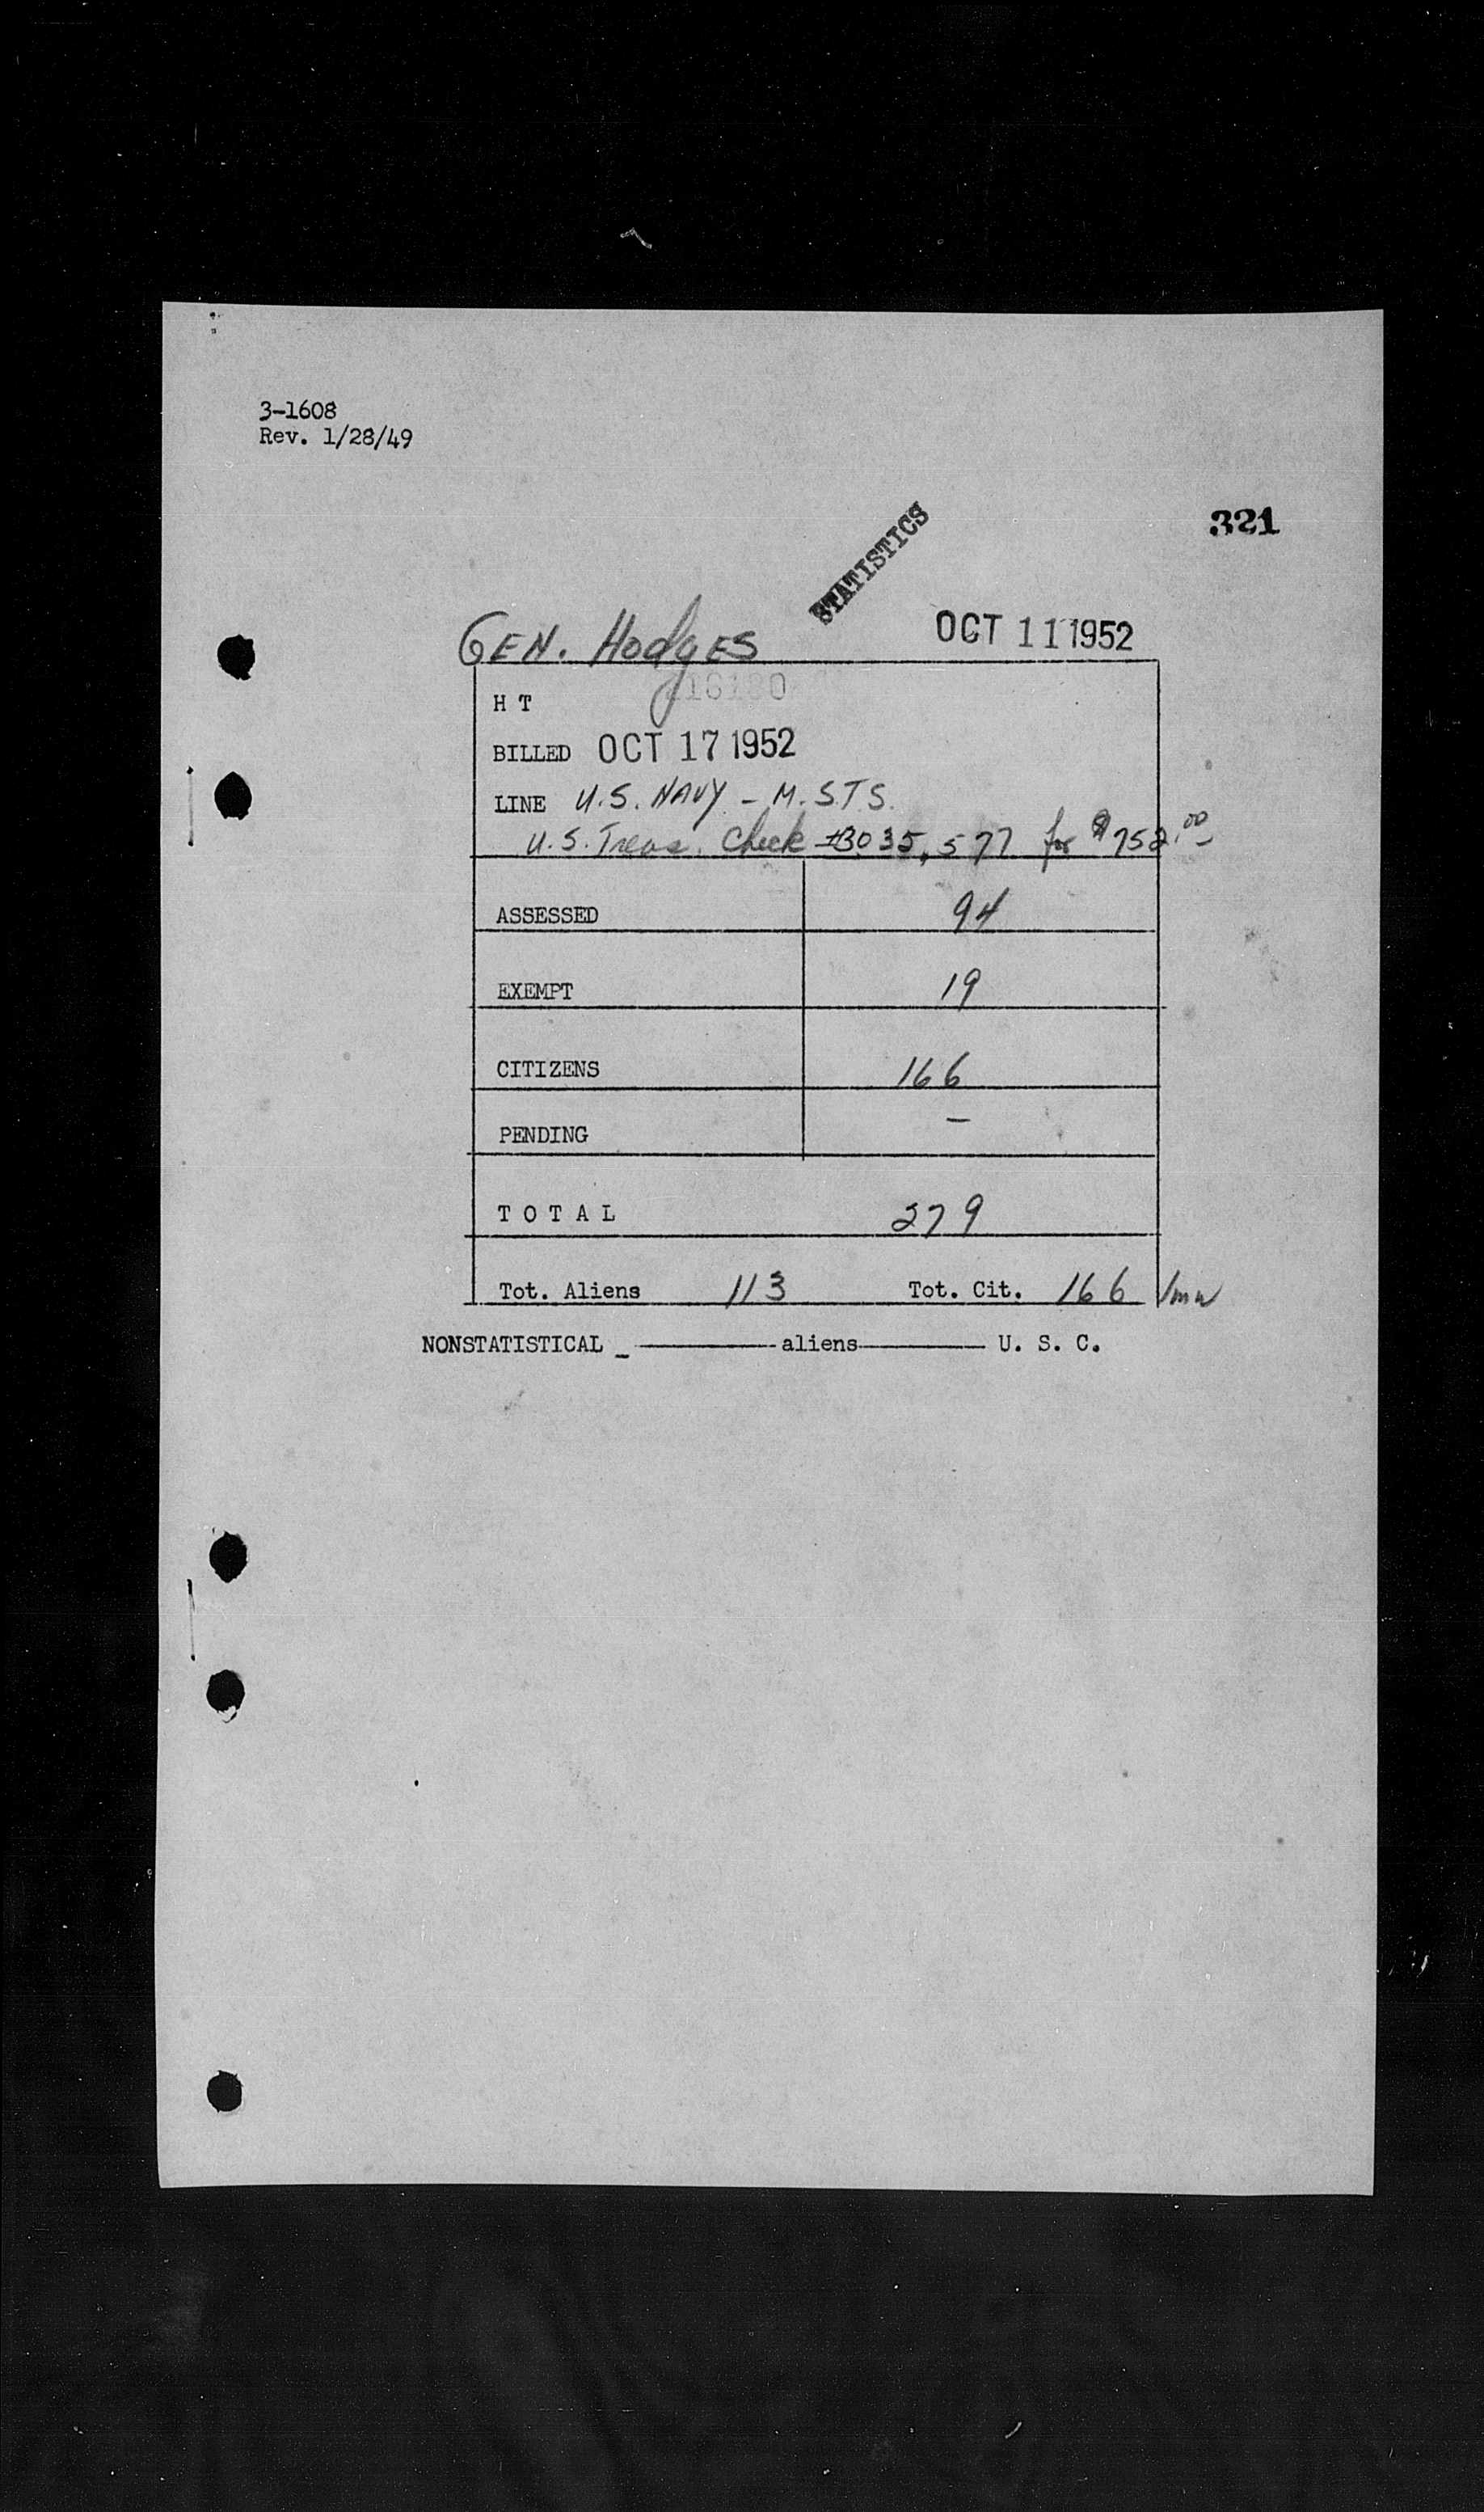 3-1608
Rev. 1/28/49
321
STATISTICS
GEN. HodgES OCT 11 1952
H T
BILLED OCT 17 1952
LINE U.S. NAVY - M.S.T.S.
U.S. Treas. Check #3035,577 for $752.00
ASSESSED 94
EXEMPT 19
CITIZENS 166
PENDING –
T O T A L 279
Tot. Aliens 113 Tot. Cit. 166
NONSTATISTICAL _ ———— aliens ———— U. S. C.